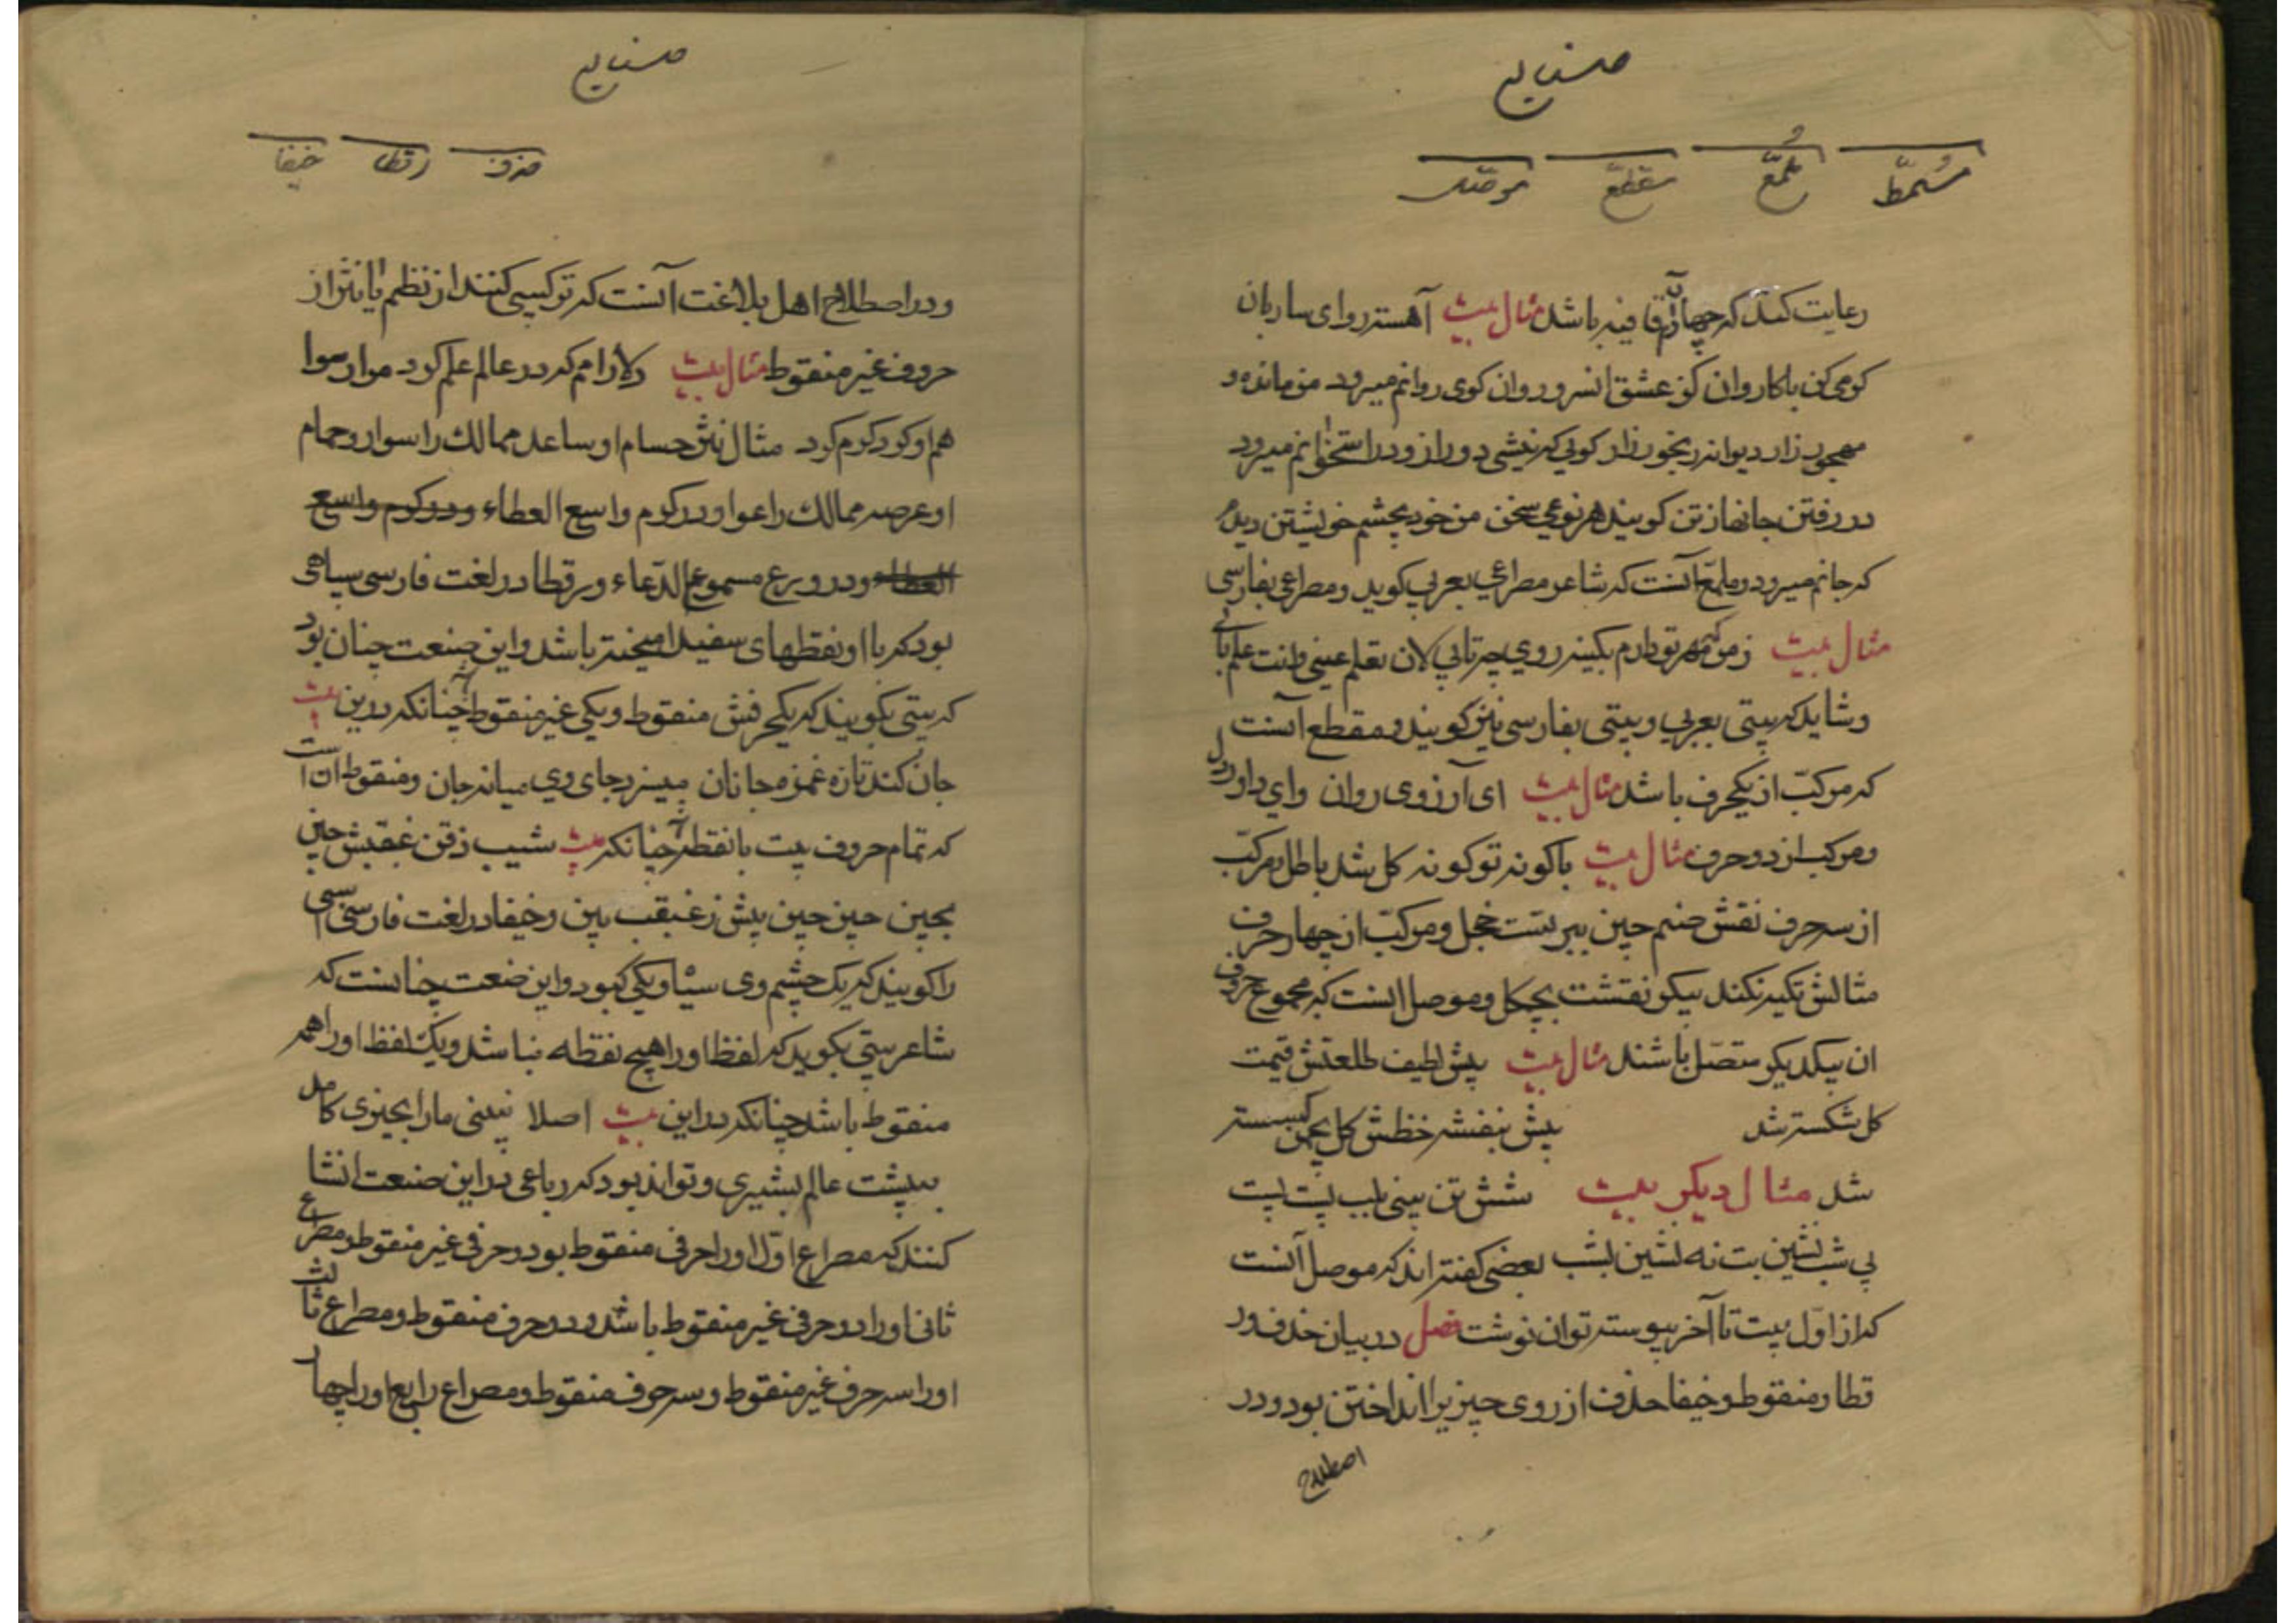 صنایع
مُسَمّط مُلَمّع مقطّع موصّل
رعایت کند که چهارم قافیه باشد مثال بیت آهسته رو ای ساربان
کومی کن با کاروان کز عشق انسرو روان کوی روانم میرود من مانده و
مهجور زار دیوانه رنجور زار کویی که نیشی دور از و در استخوانم میرود
در رفتن جانها از تن کویند هر نوعی سخن من خود بچشم خویشتن دیدم
که جانم میرود و ملمّع آنست که شاعر مصراعی بعربی کوید و مصراعی بفارسی
مثال بیت زمن که مهر تو دارم بکینه روی چه تابی لان تعلم عینی وانت علم بابی
و شاید که بیتی بعربی و بیتی بفارسی نیز کویند و مقطع آنست
که مرکبّ از یکحرف باشد مثال بیت ای آرزوی روان وای داور دل
و مرکب از دو حرف مثال بیت با کونه تو کونه کل شد باطل و مرکبّ
از سه حرف نقش صنم چین ببر تست خجل و مرکبّ از چهار حرف
مثالش تکیه نکند بیکر نقشت بچکل و موصل انست که مجموع حروف
ان بیکدیکر متصّل باشند مثال بیت پیش لطیف طلعتش قیمت
کل شکسته شد پیش بنفشه خطش کل بچمن کسسته
شد مثال دیکر بیت شش تن بینی بلب پست پست
پی شب نشین بت نه نشین بشب بعضی کفته اند که موصل آنست
که از اوّل بیت تا آخر پیوسته توان نوشت فصل در بیان حذف و ر
قطا و منقوط و خیفا حذف از روی چیز یرا انداختن بود و در
اصطلاح
صنایع
حذف رقطا خیفا
و در اصطلاح اهل بلاغت آنست که ترکیبی کنند از نظم یا نثر از
حروف غیر منقوط مثال بیت دلارامم که در عالم علم کرد مرا رسوا
هم او کرد کرم کرد مثال نثر حسام او ساعد ممالک را سوار و حمام
او عرصه ممالک را عوا و در کرم واسع العطاء و در کرم واسع
العطاء و در ورع مسموع الدّعاء و رقطا در لغت فارسی سیاهی
بود که با او نقطهای سفید امیخته باشد و این صنعت چنان بود
که بیتی بکویند که یکحرفش منقوط و یکی غیر منقوط چنانکه درین بیت
جان کند تازه غمزه جانان میسزد جای وی میانه جان و منقوط ان است
که تمام حروف بیت با نقطه چنانکه بیت شیب ذقن غبغبش چین
بجبین چین چین پیش ز غبغب بین و خیفا در لغت فارسی اسبی
را کویند که یک چشم وی سیاه و یکی کبود و این صنعت چنانست که
شاعر بیتی بکوید که لفظ اورا هیچ نقطه نباشد و یک لفظ اورا همه
منقوط باشد چنانکه در این بیت اصلا نبینی مارا بچیزی کامل
ببیشت عالم بشیری و تواند بود که رباعی در این صنعت انشا
کنند که مصراع اوّل اورا حرفی منقوط بود و حرفی غیر منقوط و مصراع
ثانی اورا دو حرفی غیر منقوط باشد و دو حرف منقوط و مصراع ثالث
اورا سه حرف غیر منقوط و سه حرف منقوط و مصراع رابع اورا چهار